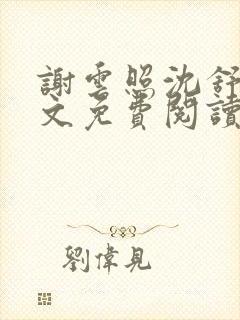 謝雲照沈舒
文免費閱讀
劉偉見